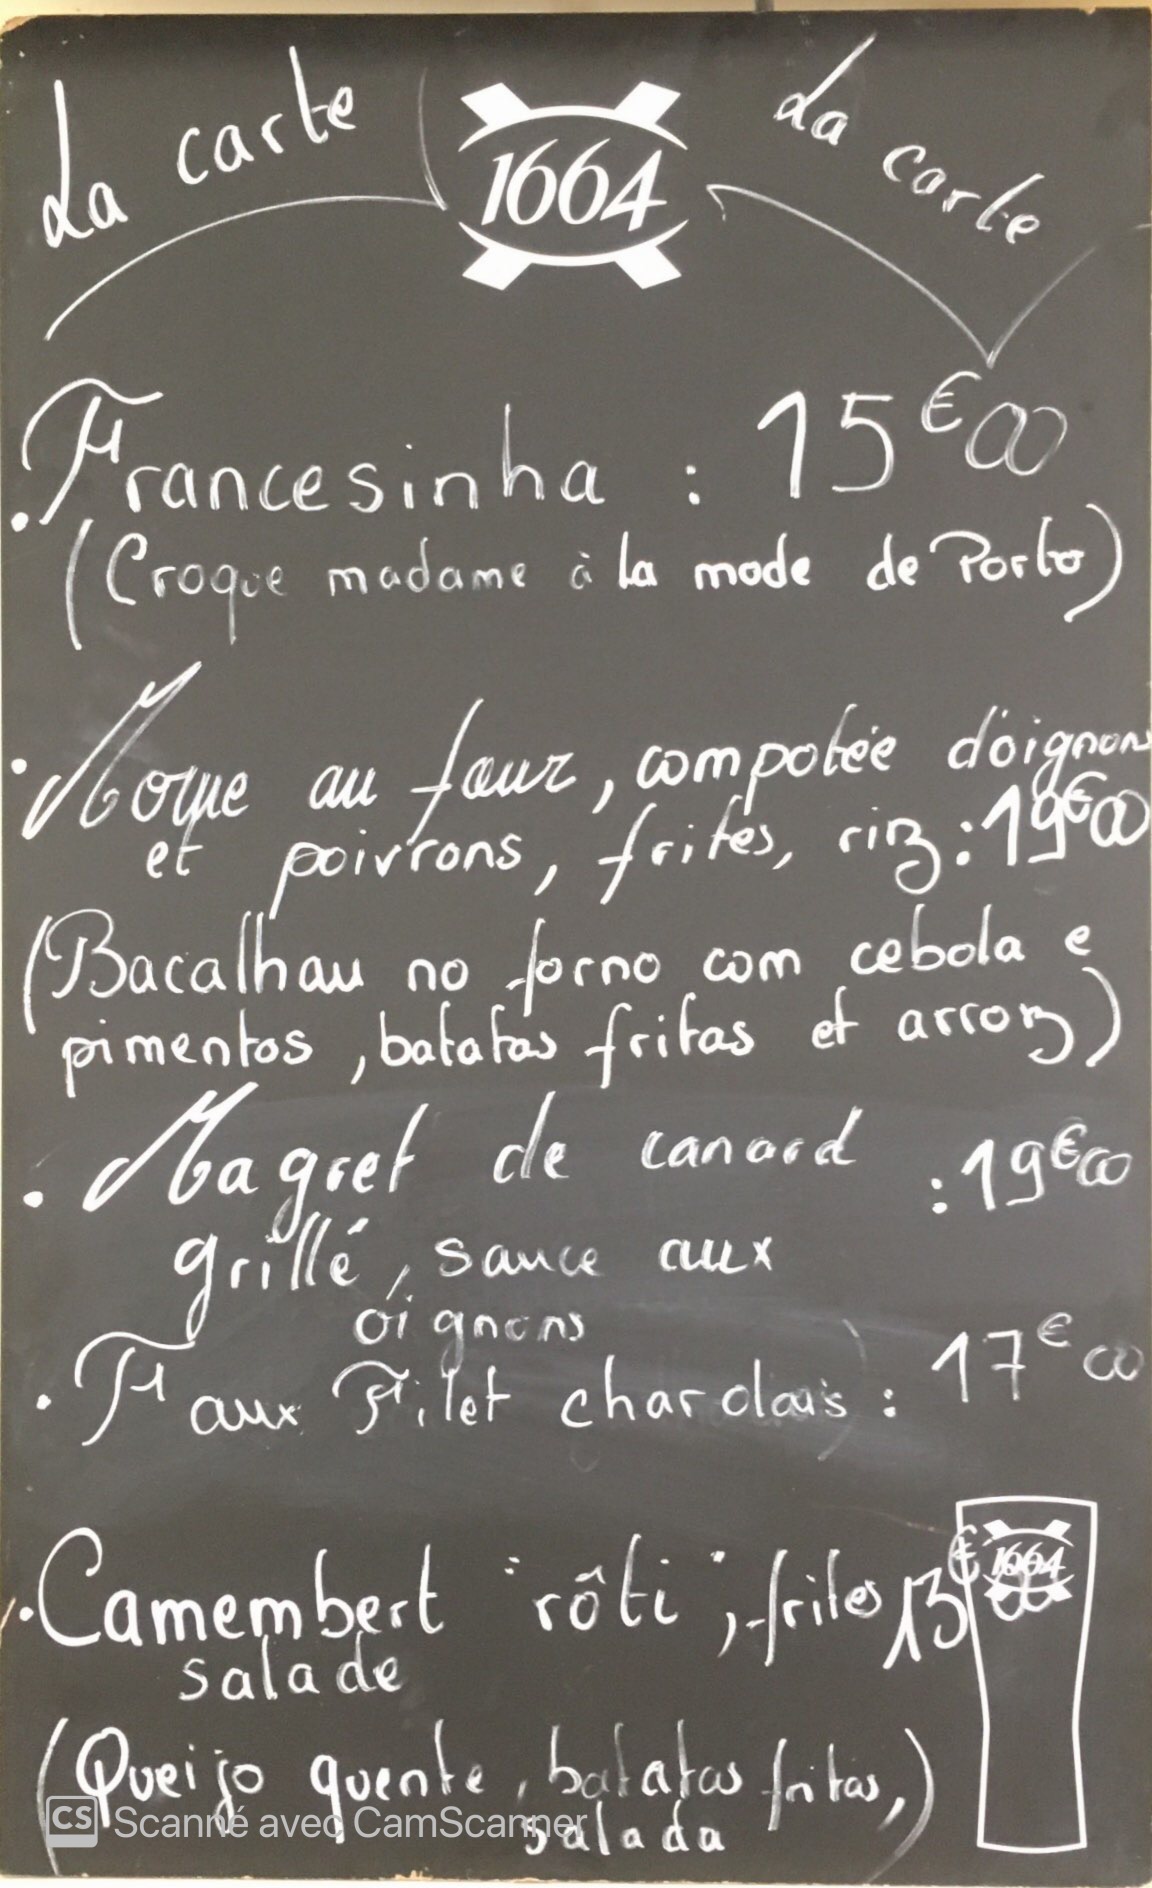 La carte
1664
La carte
. Francesinha : 15€00
(Croque madame à la mode de Porto)
. Morue au four, compotée d'oignons
et poivrons, frites, riz : 19€00
(Bacalhau no forno com cebola e
pimentos, batatas fritas et arroz)
. Magret de canard : 19€00
grillé, sauce aux
oignons
. Faux Filet charolais : 17€00
. Camembert "rôti", frites 13€00
1664
salade
(Queijo quente, batatas fritas,)
salada
CS Scanné avec CamScanner